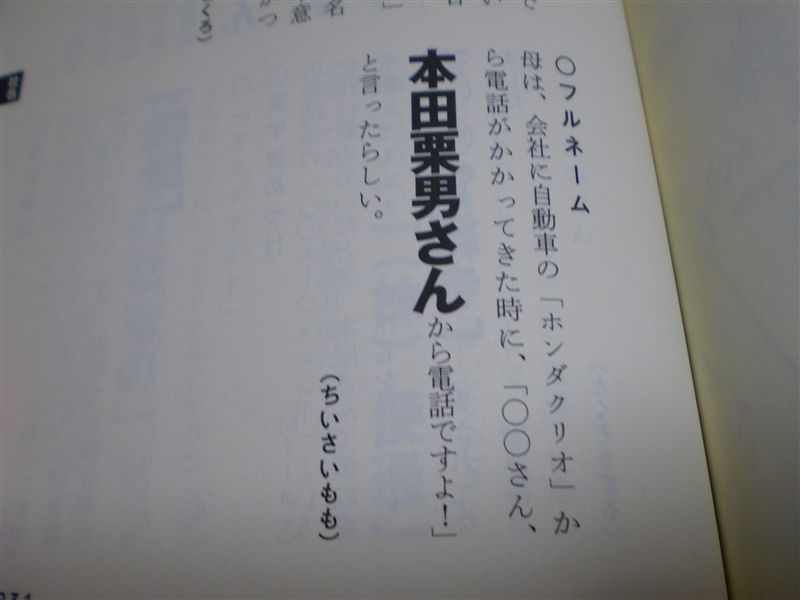 ○フルネーム
母は、会社に自動車の「ホンダクリオ」か
ら電話がかかってきた時に、「○○さん、
本田栗男さんから電話ですよ！」
と言ったらしい。
（ちいさいもも）